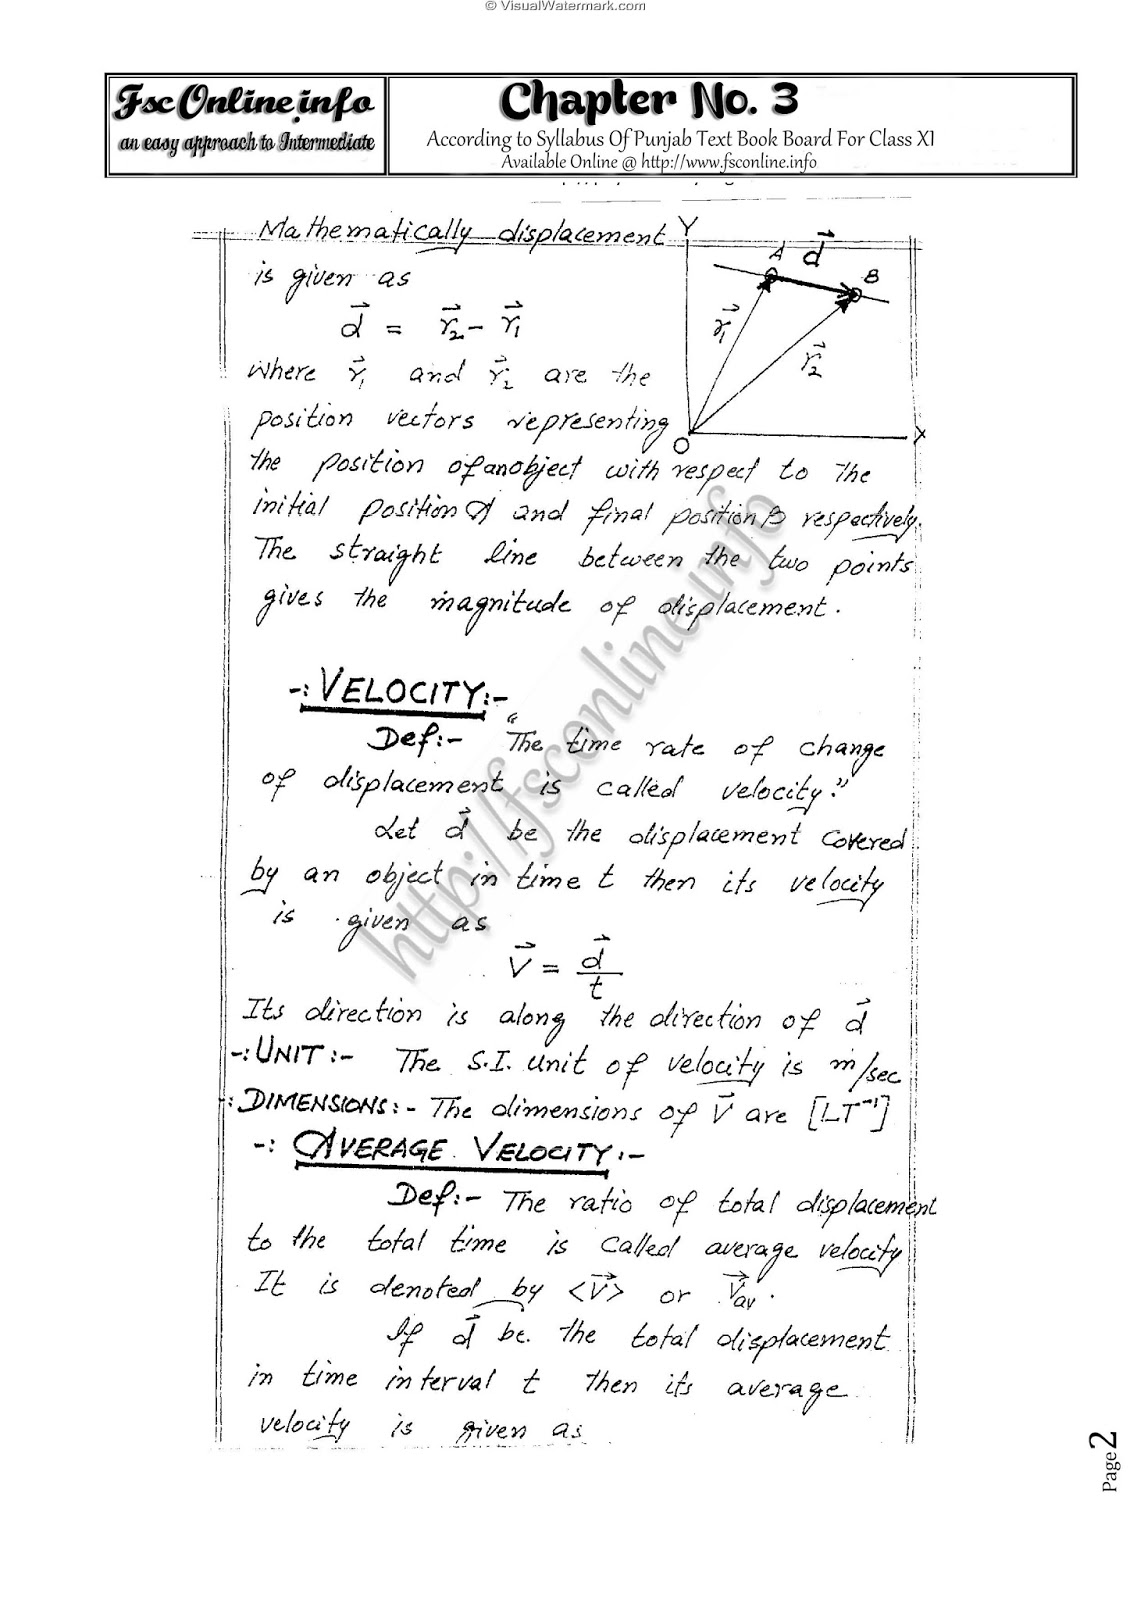 © VisualWatermark.com
Fsc Online.info
an easy approach to Intermediate
Chapter No. 3
According to Syllabus Of Punjab Text Book Board For Class XI
Available Online @ http://www.fsconline.info
Mathematically displacement
is given as
d⃗ = r⃗₂ - r⃗₁
where r⃗₁ and r⃗₂ are the
position vectors representing
the position of an object with respect to the
initial position A and final position B respectively.
The straight line between the two points
gives the magnitude of displacement.
Y
A
d⃗
B
r⃗₁
r⃗₂
O
X
-: VELOCITY:-
Def:- "The time rate of change
of displacement is called velocity."
Let d⃗ be the displacement covered
by an object in time t then its velocity
is given as
V⃗ = d⃗/t
Its direction is along the direction of d⃗
-: UNIT :- The S.I. unit of velocity is m/sec
-: DIMENSIONS:- The dimensions of V⃗ are [LT⁻¹]
-: AVERAGE VELOCITY:-
Def:- The ratio of total displacement
to the total time is called average velocity
It is denoted by <V⃗> or V⃗av.
If d⃗ be the total displacement
in time interval t then its average
velocity is given as
http://fsconline.info
Page 2